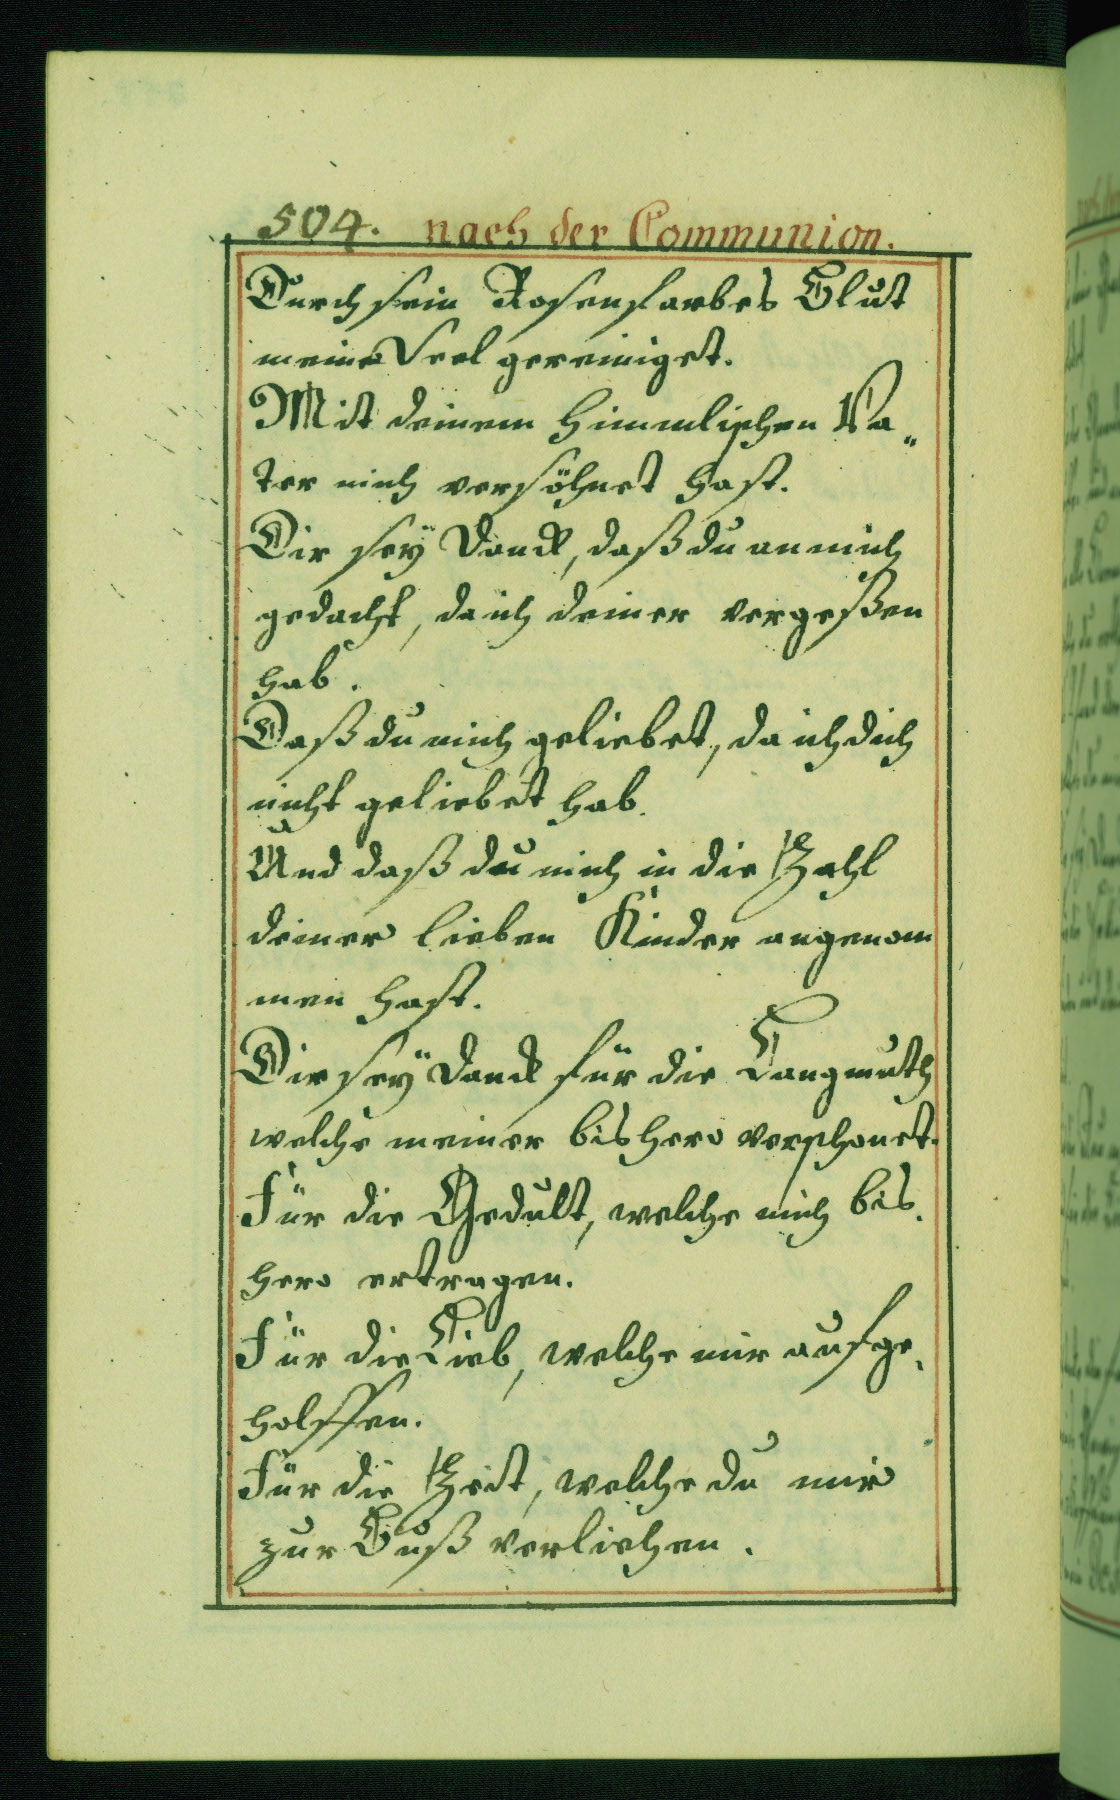 504. nach der Communion.
Durch sein Rosenfarbes Blut
meine Seel gereiniget.
Mit deinem Himmlischen Va„
ter mich versöhnet hast.
Dir seÿ Danck, daß du an mich
gedacht, da ich deiner vergeßen
hab.
Daß du mich geliebet, da ich dich
nicht geliebet hab.
Und daß du mich in die Zahl
deiner lieben Kinder angenom
men hast.
Dir seÿ Danck für die Langmuth
welche meiner bishero verschonet.
Für die Gedult, welche mich bis„
hero ertragen.
Für die Lieb, welche mir aufge„
holffen.
Für die Zeit, welche du mir
zur Buß verliehen.